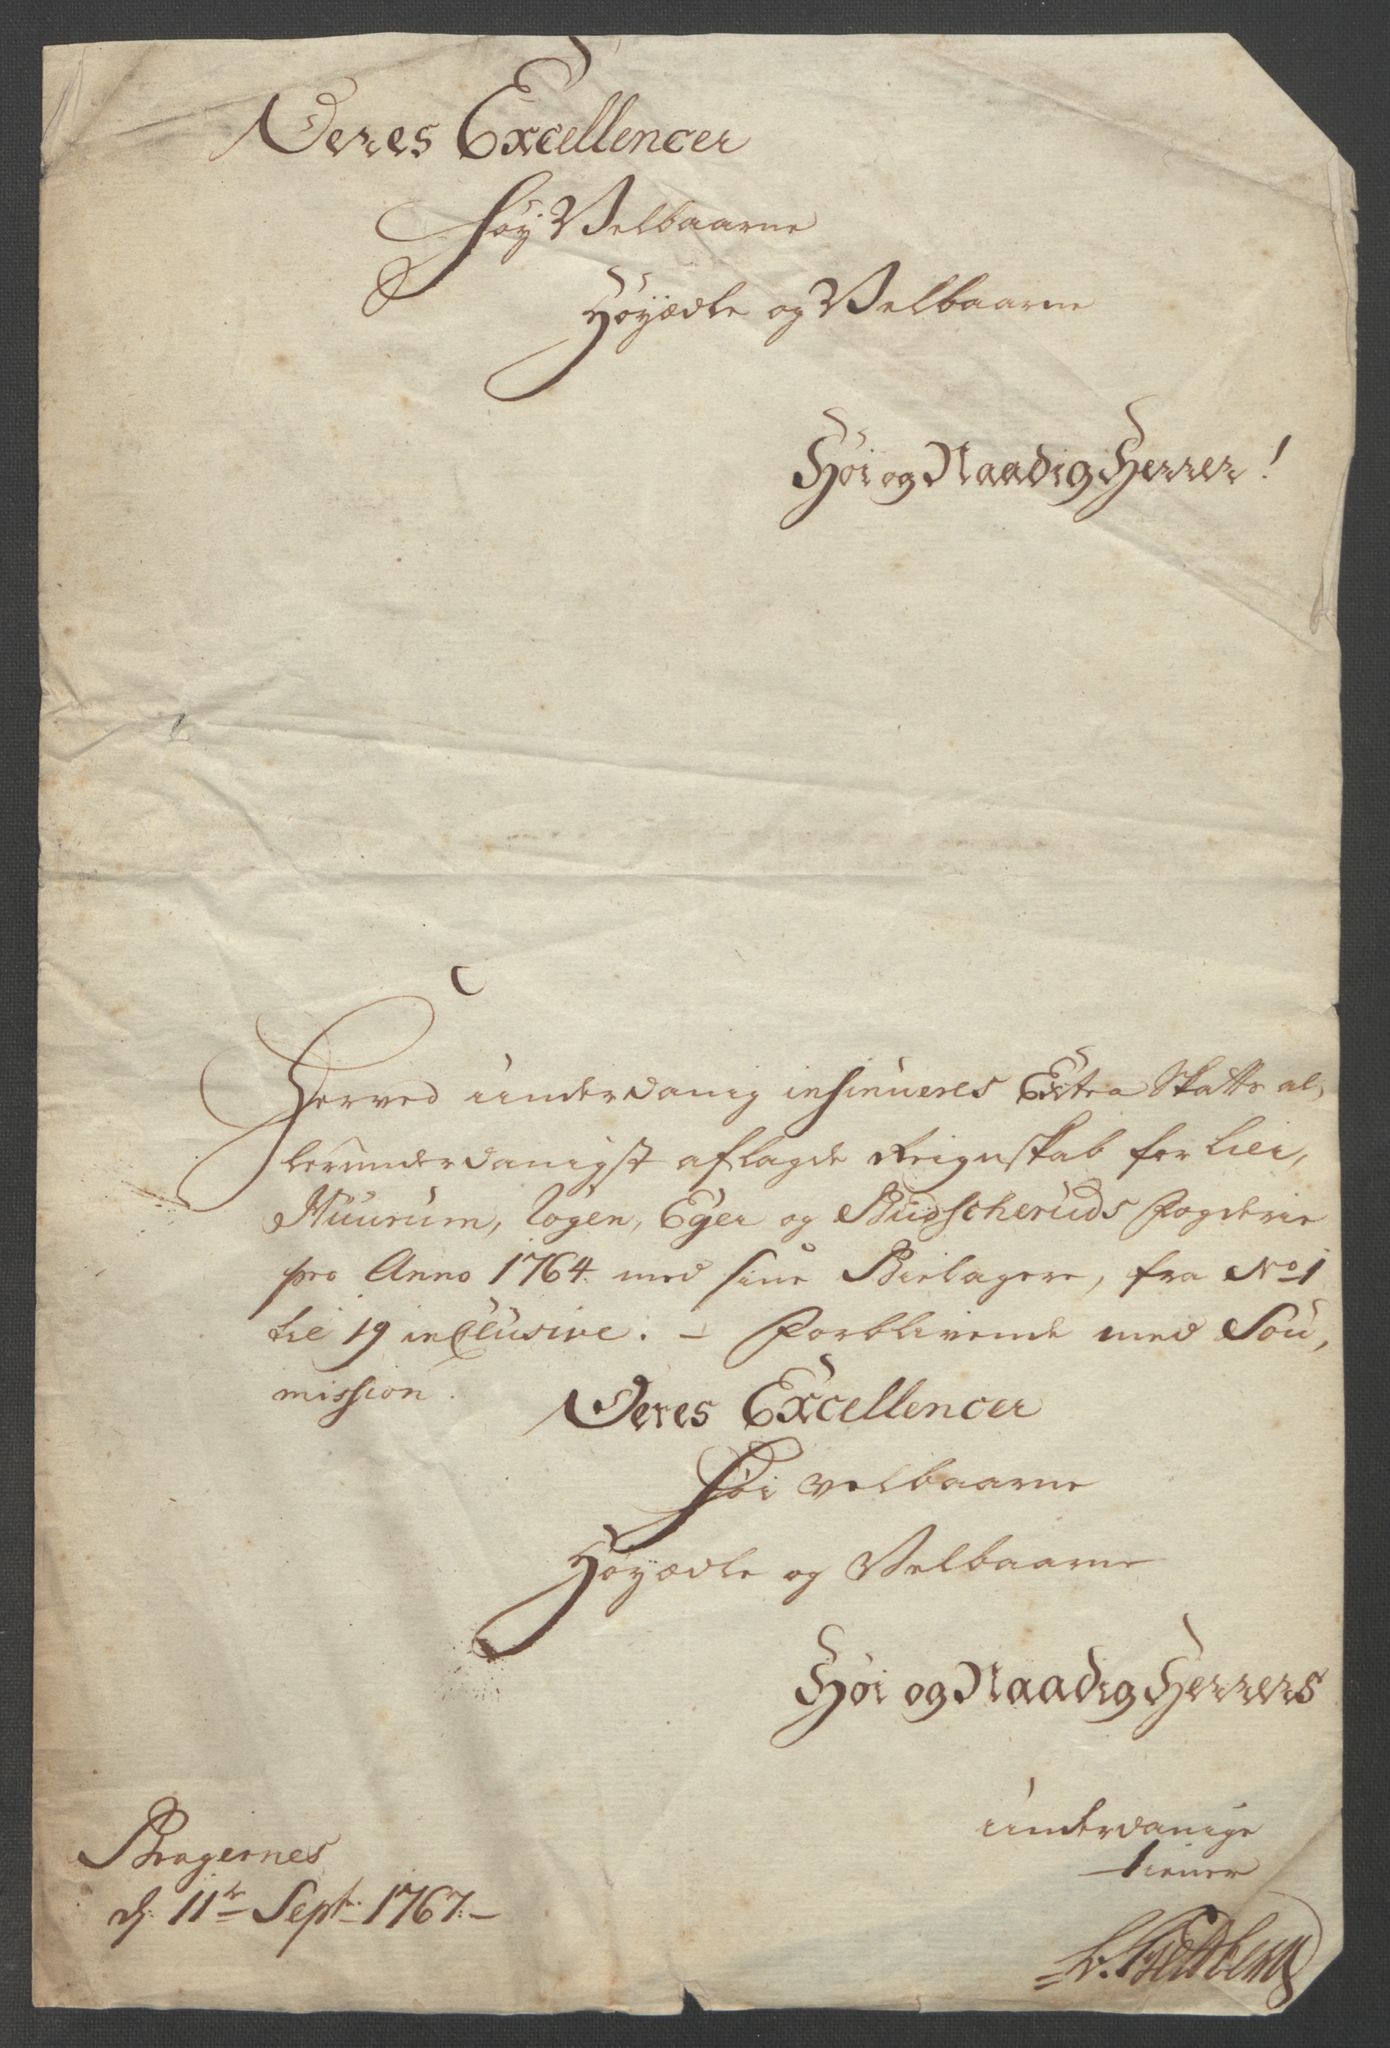 Deres Excellencer
Høy Velbaarne
Høyædle og Velbaarne
Høi og Naadig Herrer!
Herved underdanig insinueres Extra Skatts al,
lerunderdanigst aflagde Reignskab for Lier,
Huurum, Zogen, Eger og Budscheruds Fogderie
pro Anno 1764 med sine Bielagere, fra No 1
til 19 inclusive. – Forblivende med Sou,
mission.
Deres Excellencer
Høi velbaarne
Høyædle og Velbaarne
Høi og Naadig Herrers
underdanige
tiener
Bragernes
d. 11te Sept. 1767.